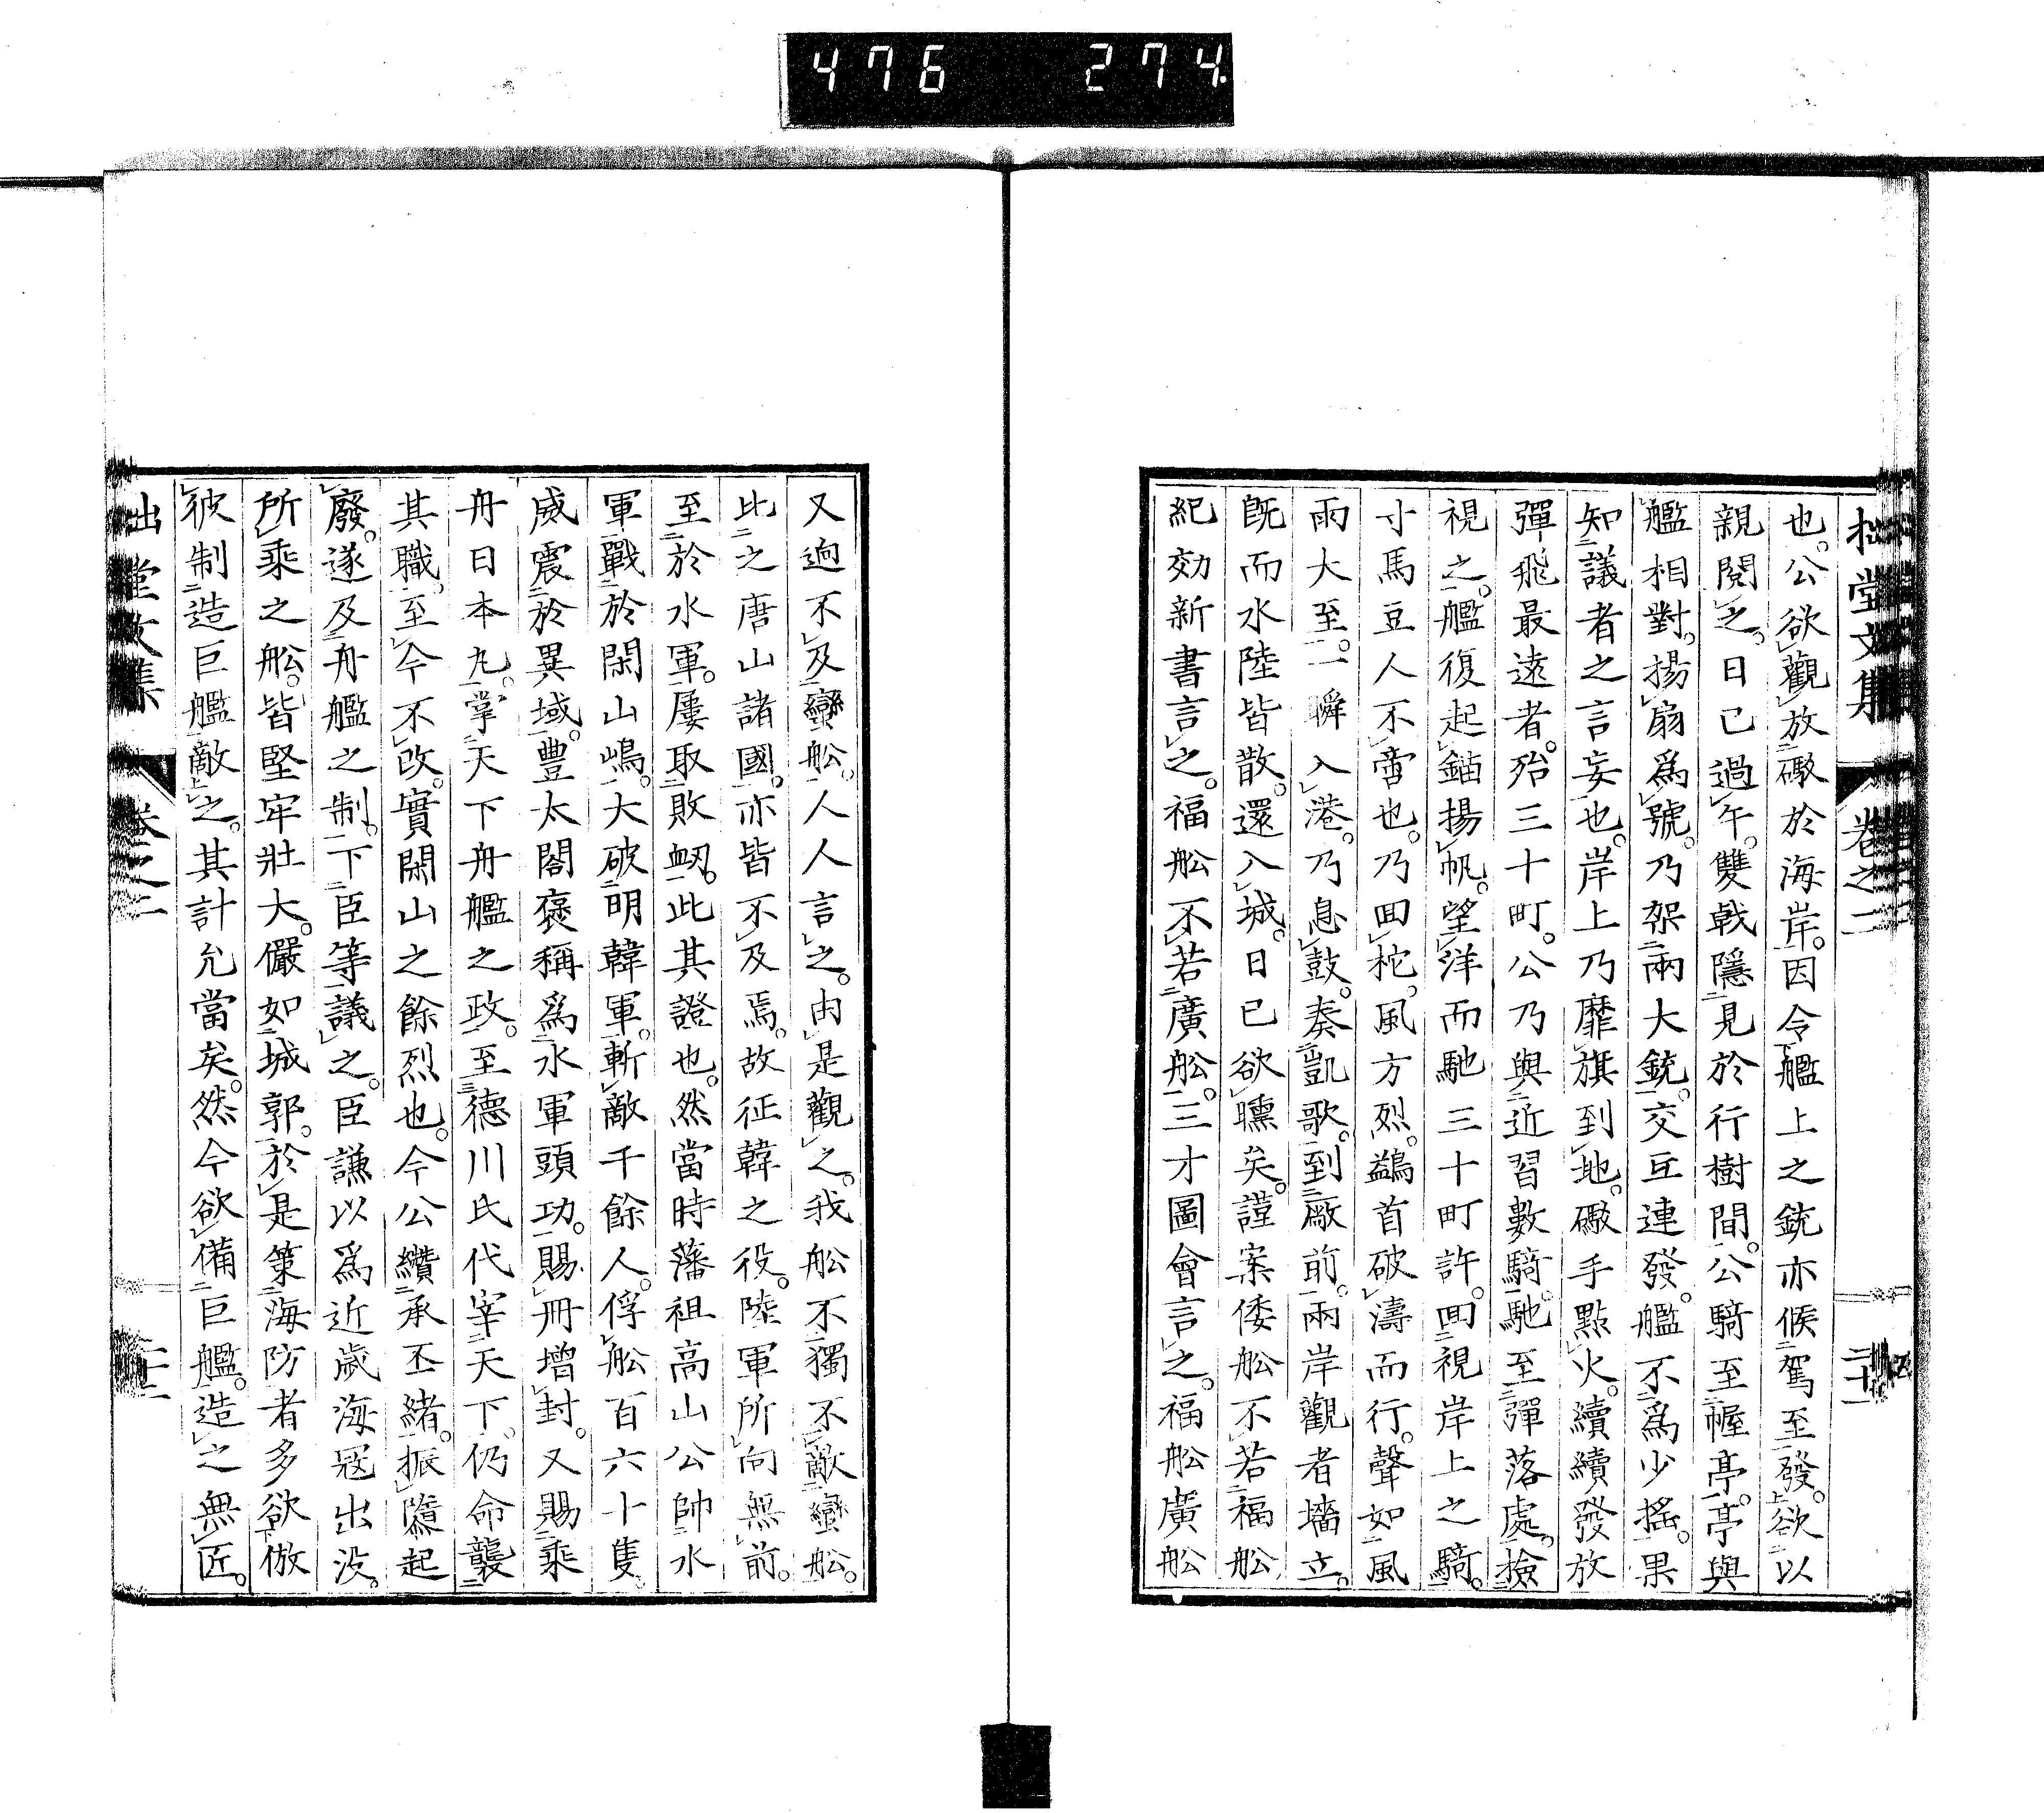 476 274
拙堂文集 卷之一 二十一
也。公欲觀放礮於海岸。因令艦上之銃亦候駕至發。欲以
親閱之。日已過午。雙戟隱見於行樹間。公騎至幄亭。亭與
艦相對。揚扇爲號。乃架兩大銃。交互連發。艦不爲少搖。果
知議者之言妄也。岸上乃靡旗到地。礮手點火。續續發放
彈飛最遠者。殆三十町。公乃與近習數騎。馳至彈落處。撿
視之。艦復起錨揚帆。望洋而馳三十町許。回視岸上之騎。
寸馬豆人不啻也。乃回柁。風方烈。鷁首破濤而行。聲如風
雨大至。一瞬入港。乃息鼓。奏凱歌。到廠前。兩岸觀者墻立。
既而水陸皆散。還入城。日已欲曛矣。謹案倭舩不若福舩
紀効新書言之。福舩不若廣舩。三才圖會言之。福舩廣舩
又逈不及蠻舩。人人言之。由是觀之。我舩不獨不敵蠻舩。
比之唐山諸國。亦皆不及焉。故征韓之役。陸軍所向無前。
至於水軍。屢取敗衂。此其證也。然當時藩祖高山公帥水
軍戰於閑山嶋。大破明韓軍。斬敵千餘人。俘舩百六十隻。
威震於異域。豐太閤褒稱爲水軍頭功。賜冊增封。又賜乘
舟日本丸。掌天下舟艦之政。至德川氏代宰天下。仍命襲
其職。至今不改。實閑山之餘烈也。今公纘承丕緒。振隳起
廢。遂及舟艦之制。下臣等議之。臣謙以爲近歲海冦出沒。
所乘之舩。皆堅牢壯大。儼如城郭。於是策海防者多欲倣
彼制造巨艦敵之。其計允當矣。然今欲備巨艦。造之無匠。
堂文集 卷之一